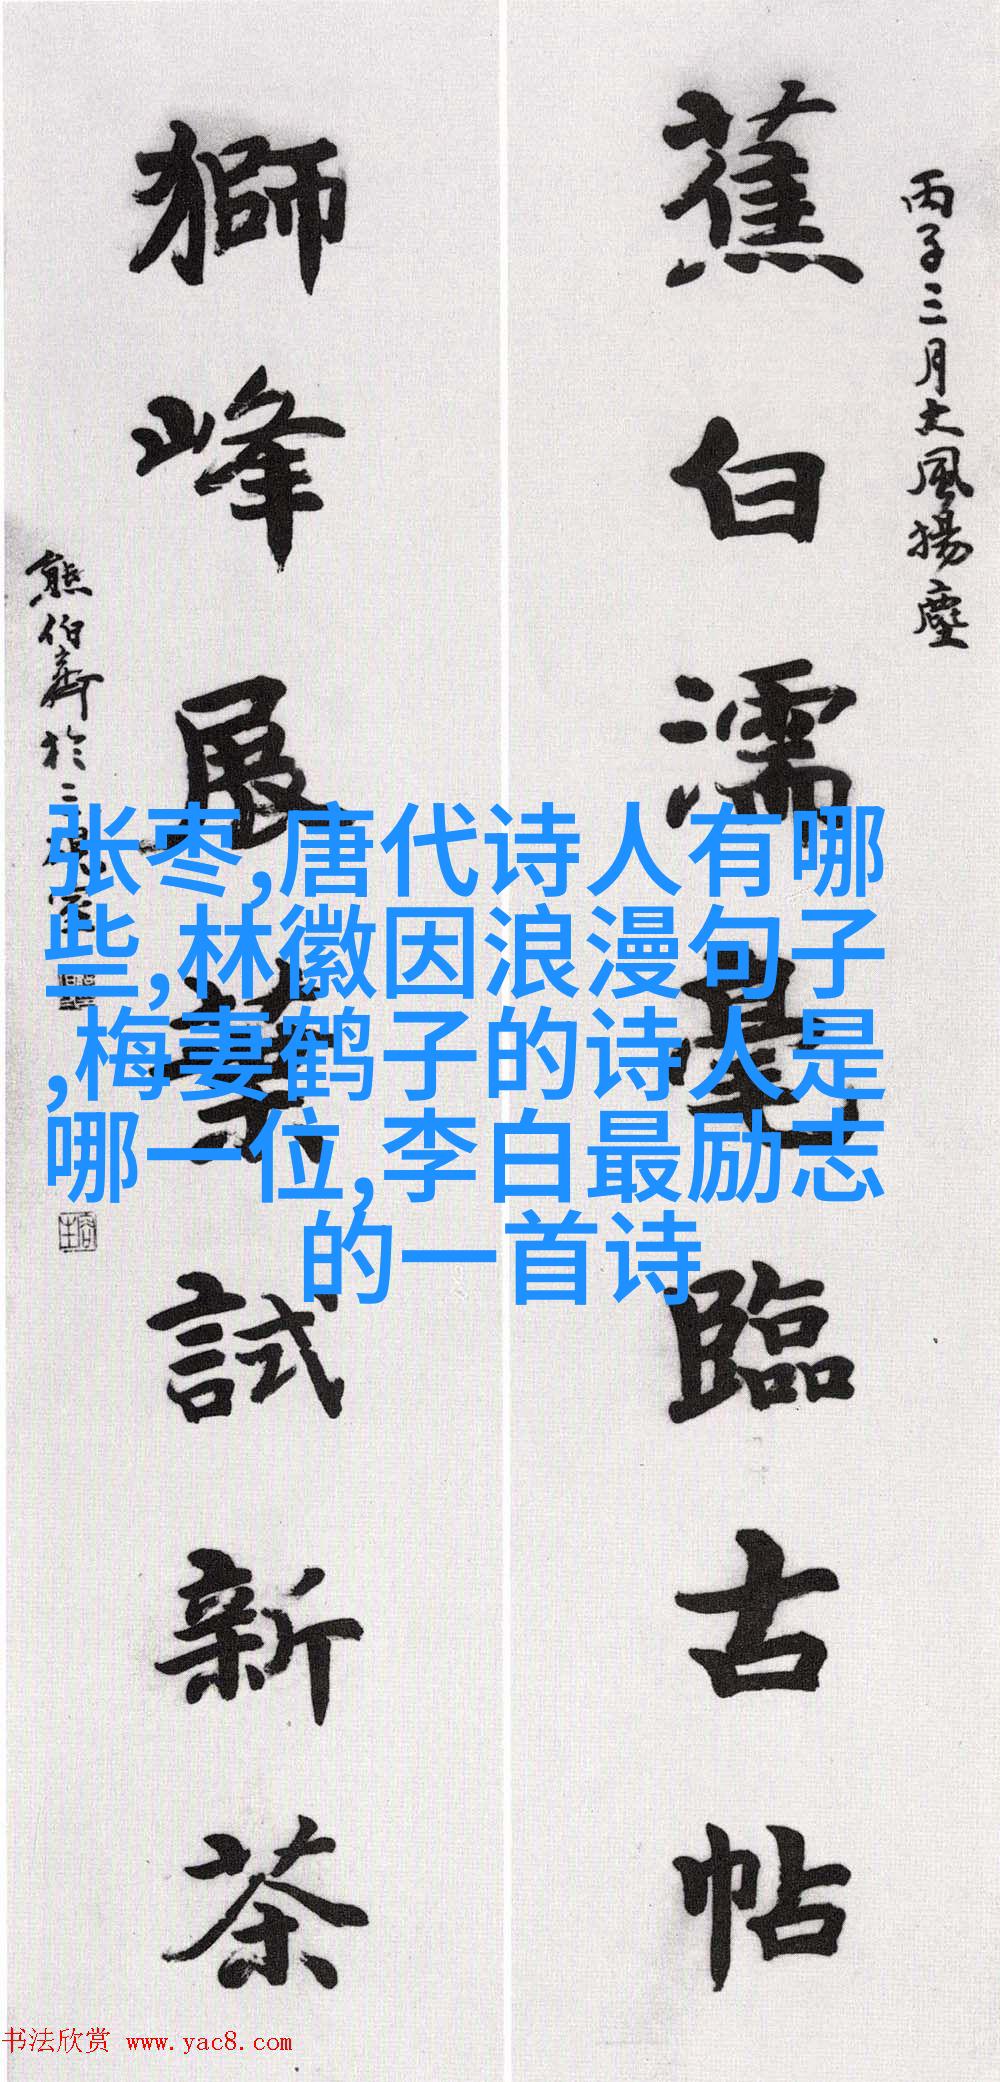 丙子三月大風揚塵
蕉白濡毫臨古帖
獅峰展
試新茶
熊伯齊於二
张枣,唐代诗人有哪
些,林徽因浪漫句子
,梅妻鹤子的诗人是
哪一位,李白最励志
的一首诗
书法欣赏 www.yac8.com